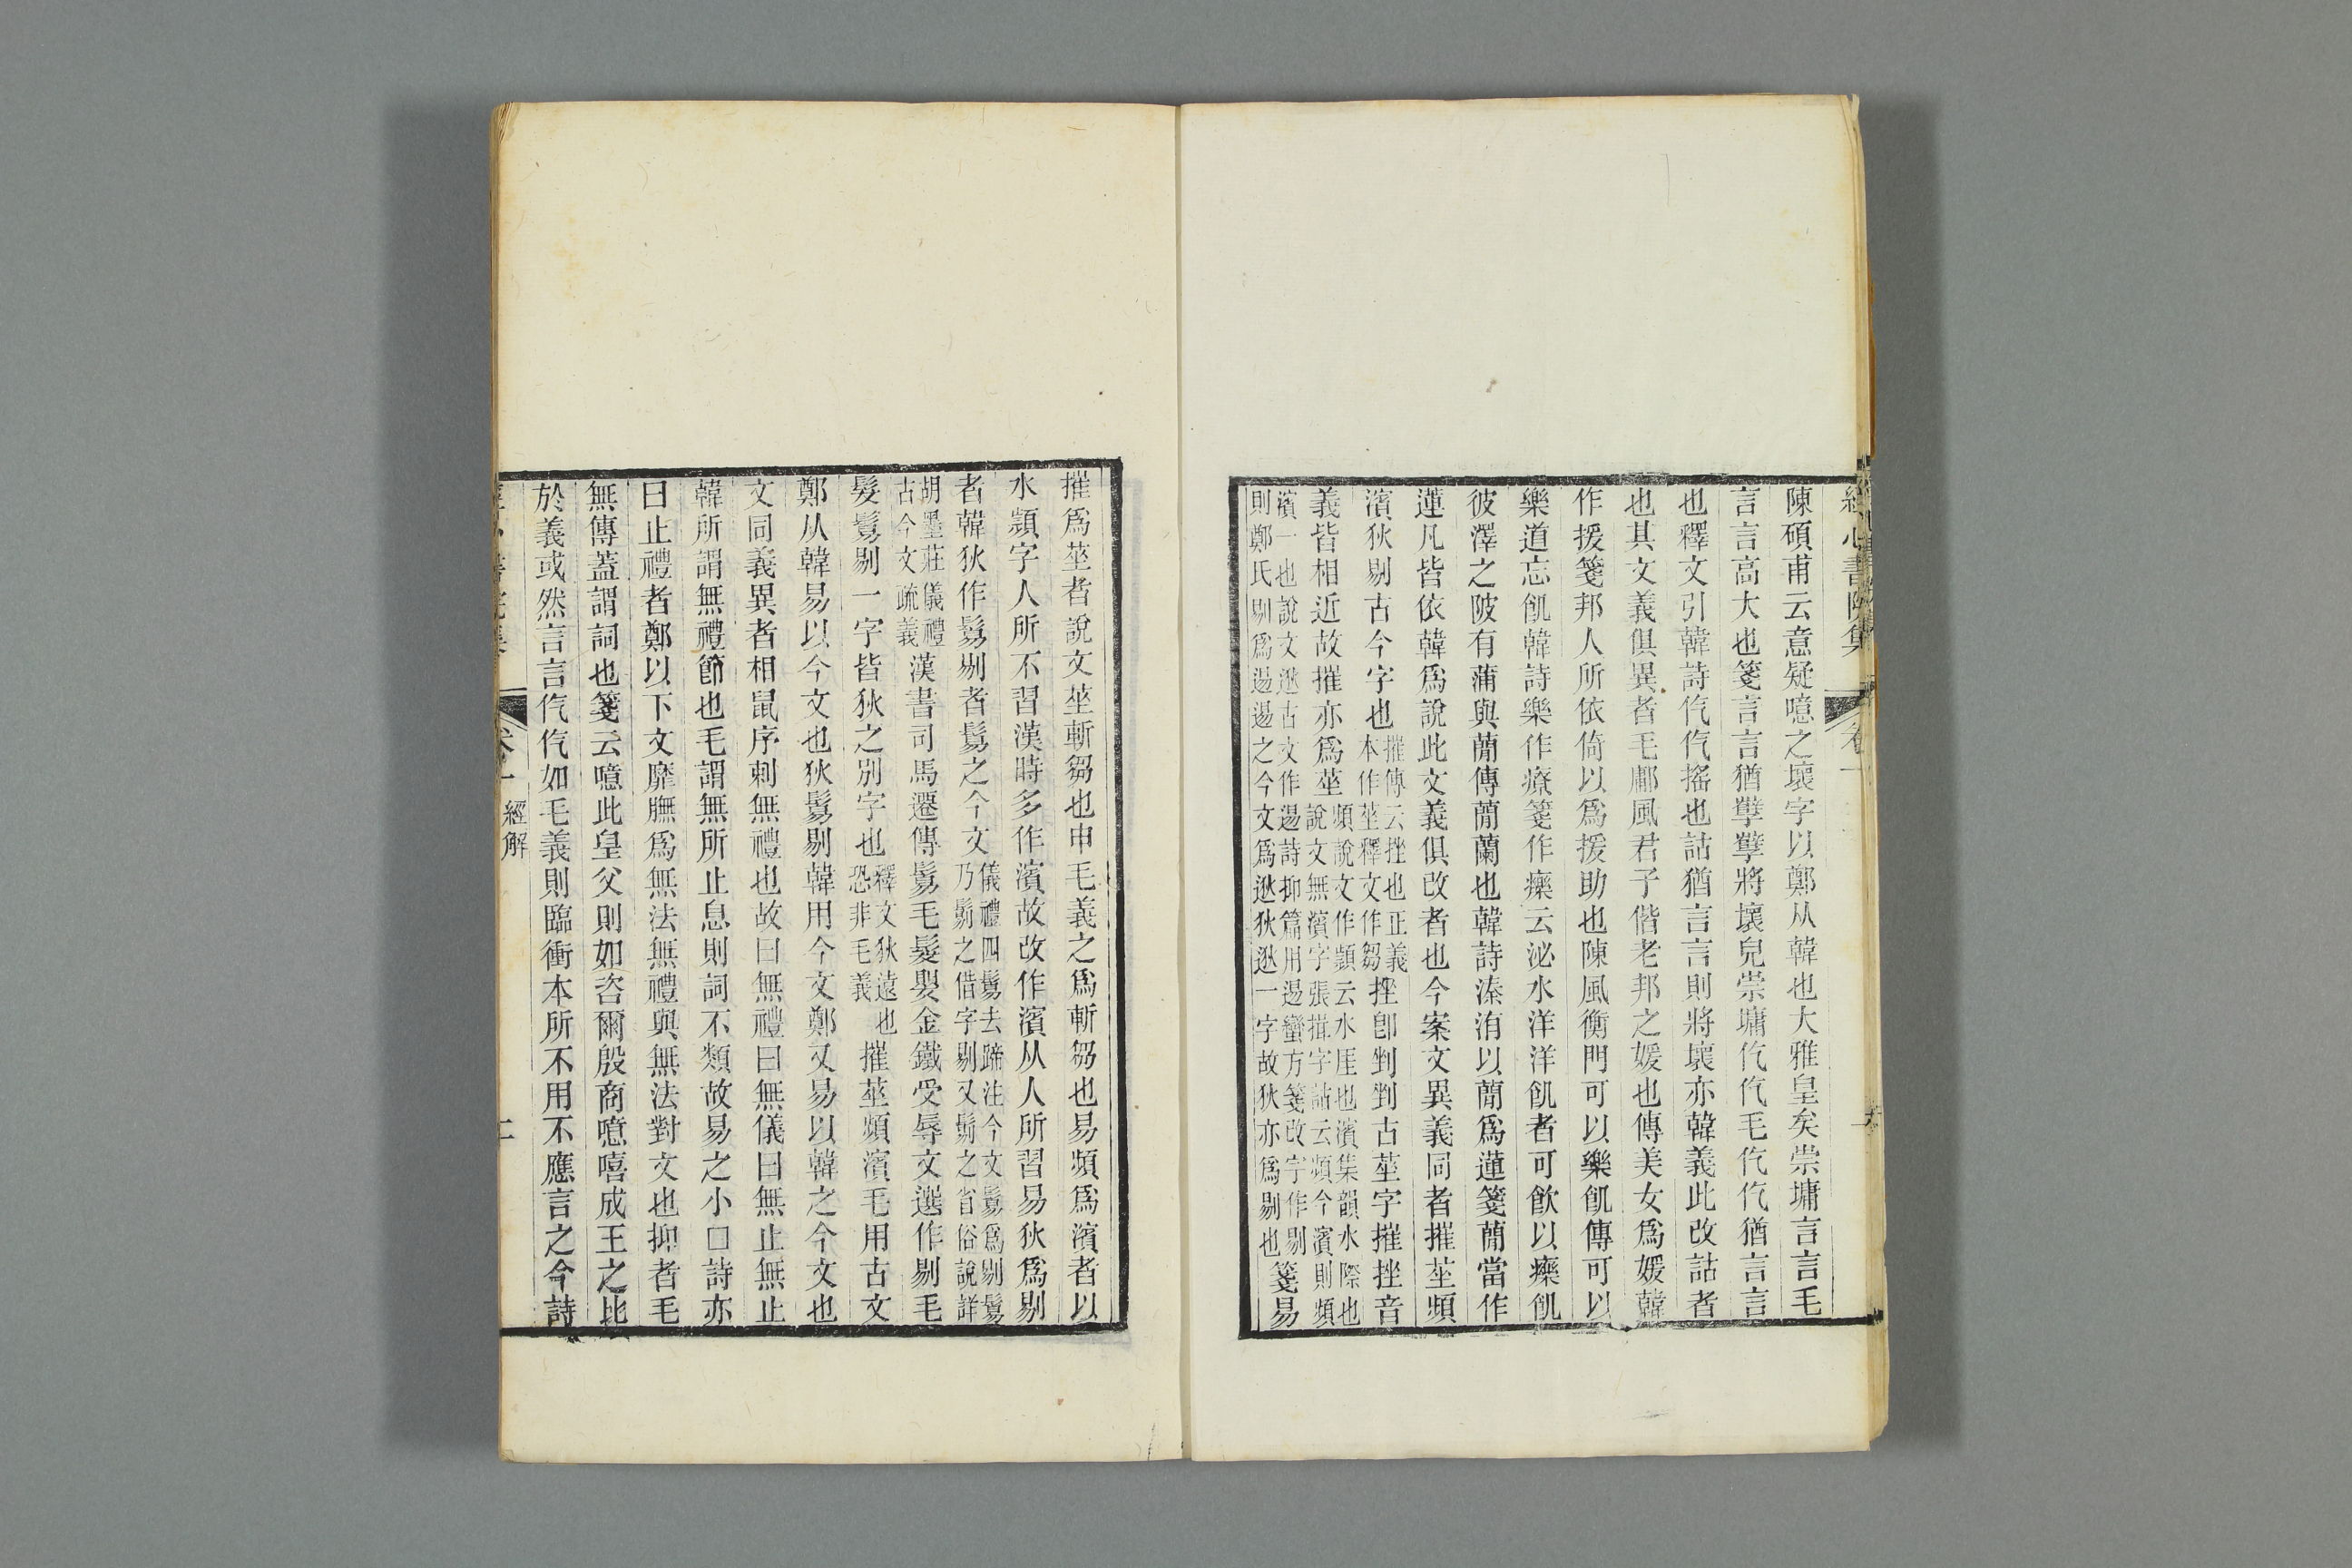 經心書院集
卷一
陳碩甫云意疑噫之壞字以鄭从韓也大雅皇矣崇墉言言毛
言言高大也箋言言猶孽孽將壞皃崇墉仡仡毛仡仡猶言言
也釋文引韓詩仡仡搖也詁猶言言則將壞亦韓義此改詁者
也其文義俱異者毛鄘風君子偕老邦之媛也傳美女爲媛韓
作援箋邦人所依倚以爲援助也陳風衡門可以樂飢傳可以
樂道忘飢韓詩樂作療箋作𤻲云泌水洋洋飢者可飲以𤻲飢
彼澤之陂有蒲與蕑傳蕑蘭也韓詩溱洧以蕑爲蓮箋蕑當作
蓮凡皆依韓爲說此文義俱改者也今案文異義同者摧莝頻
濱狄剔古今字也摧傳云挫也正義本作莝釋文作芻挫卽剉剉古莝字摧挫音
義皆相近故摧亦爲莝頻說文作顥云水厓也濱集韻水際也說文無濱字張揖字詁云頻今濱則頻
濱一也說文逖古文作逷詩抑篇用逷蠻方箋改字作剔則鄭氏剔爲逷逷之今文爲逖狄逖一字故狄亦爲剔也箋易
摧爲莝者說文莝斬芻也申毛義之爲斬芻也易頻爲濱者以
水顥字人所不習漢時多作濱故改作濱从人所習易狄爲剔
者韓狄作鬄剔者鬄之今文儀禮四鬄去蹄注今文鬄爲剔鬄乃鬀之借字剔又鬀之省俗說詳
胡墨莊儀禮古今文疏義漢書司馬遷傳鬄毛髮嬰金鐵受辱文選作剔毛
髮鬄剔一字皆狄之別字也釋文狄遠也恐非毛義摧莝頻濱毛用古文
鄭从韓易以今文也狄鬄剔韓用今文鄭又易以韓之今文也
文同義異者相鼠序刺無禮也故曰無禮曰無儀曰無止無止
韓所謂無禮節也毛謂無所止息則詞不類故易之小□詩亦
曰止禮者鄭以下文靡膴爲無法無禮與無法對文也抑者毛
無傳蓋謂詞也箋云噫此皇父則如咨爾殷商噫嘻成王之比
於義或然言言仡仡如毛義則臨衝本所不用不應言之今詩
卷一
經解
二